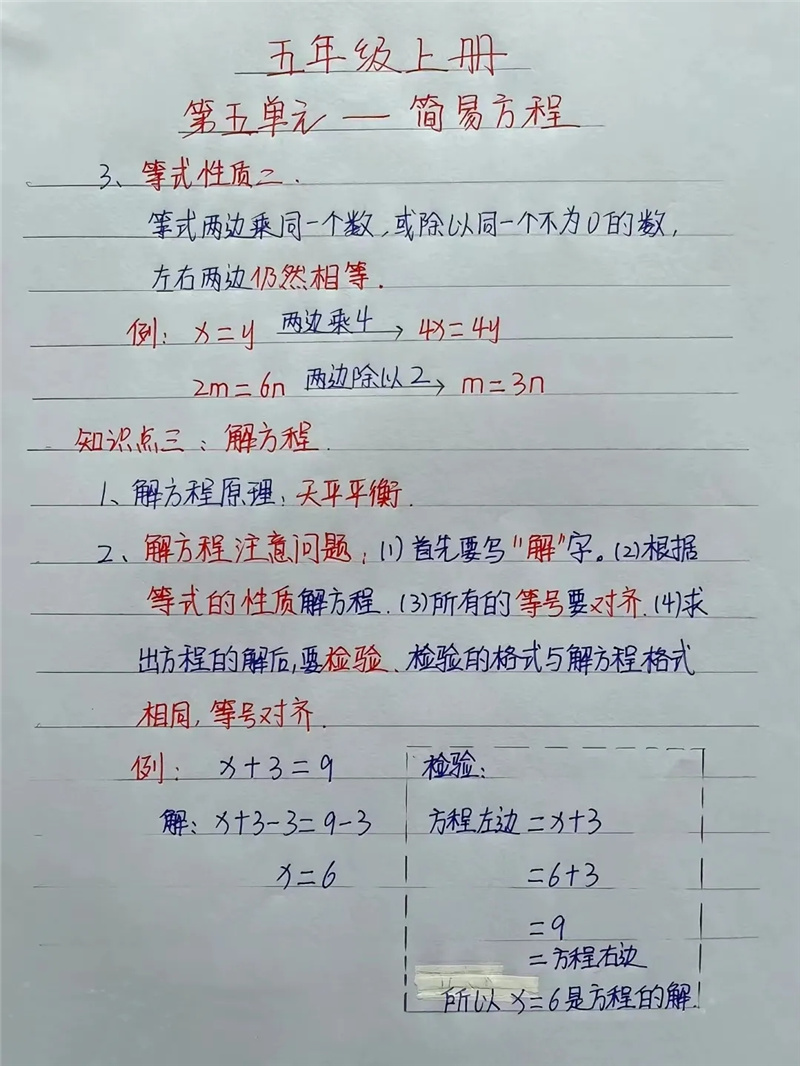 五年级上册
第五单元 — 简易方程
3、等式性质二.
等式两边乘同一个数,或除以同一个不为0的数,
左右两边仍然相等.
例: x=y 两边乘4→ 4x=4y
2m=6n 两边除以2→ m=3n
知识点三:解方程.
1、解方程原理:天平平衡.
2、解方程注意问题:(1)首先要写"解"字。(2)根据
等式的性质解方程.(3)所有的等号要对齐.(4)求
出方程的解后,要检验.检验的格式与解方程格式
相同,等号对齐.
例: x+3=9
解: x+3-3=9-3
x=6
检验:
方程左边=x+3
=6+3
=9
=方程右边
所以x=6是方程的解.